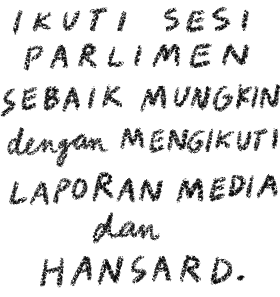 IKUTI SESI
PARLIMEN
SEBAIK MUNGKIN
dengan MENGIKUTI
LAPORAN MEDIA
dan
HANSARD.